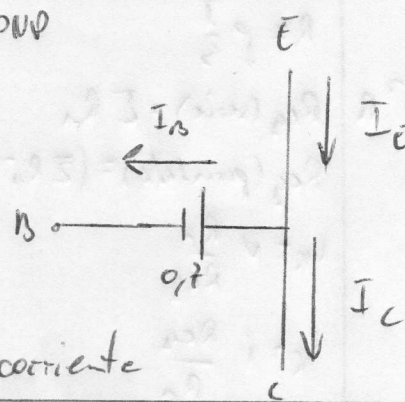 E
I_B
I_E
B
0,7
I_C
corriente
C